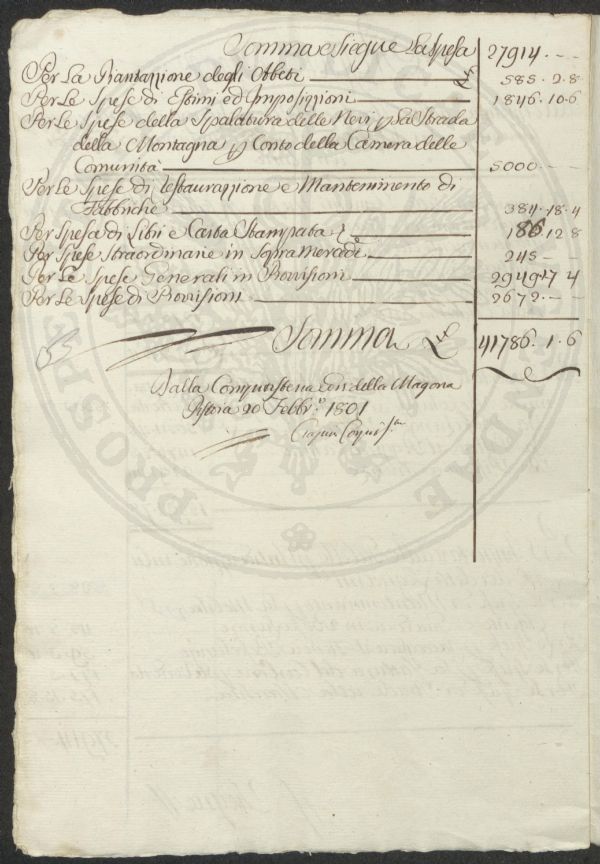 Somma e Siegue La Spesa 27914. - -
Per La Piantazzione degli Abeti £ 585. 2. 8
Per Le Spese di Estimi ed Imposizzioni 1846. 10. 6
Per Le Spese della Spalatura delle Nevi p La Strada
della Montagna p Conto della Camera delle
Comunità 5000. - -
Per Le Spese di restaurazzione e Mantenimento di
Fabbriche 384. 18. 4
Per Spesa di Libri e Carta Stampata 186. 12. 8
Per Spese Straordinarie in Sopra Mercadi 245 -
Per Le Spese Generali in Provisioni 2949. 17 4
Per Le Spese di Provisioni 2672. - -
Somma £ 41786. 1. 6
Dalla Computisteria della Magona
Pistoia 20 Febbr.º 1801
PROSPE